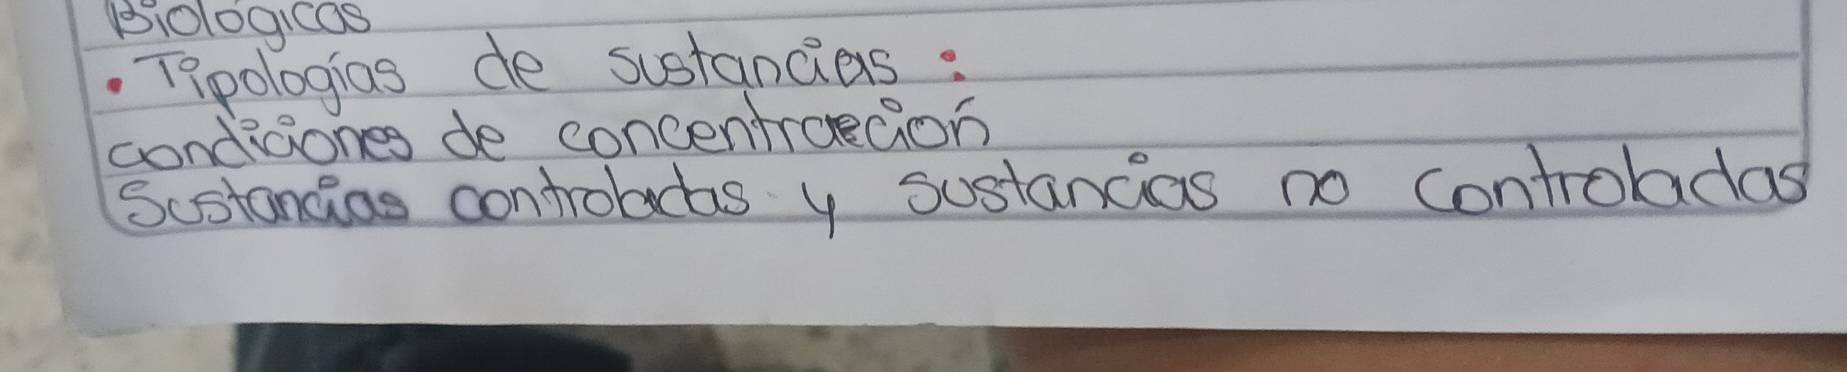 Biológicas
• Tipologías de sustancias:
condiciones de concentración
Sustancias controladas y sustancias no controladas